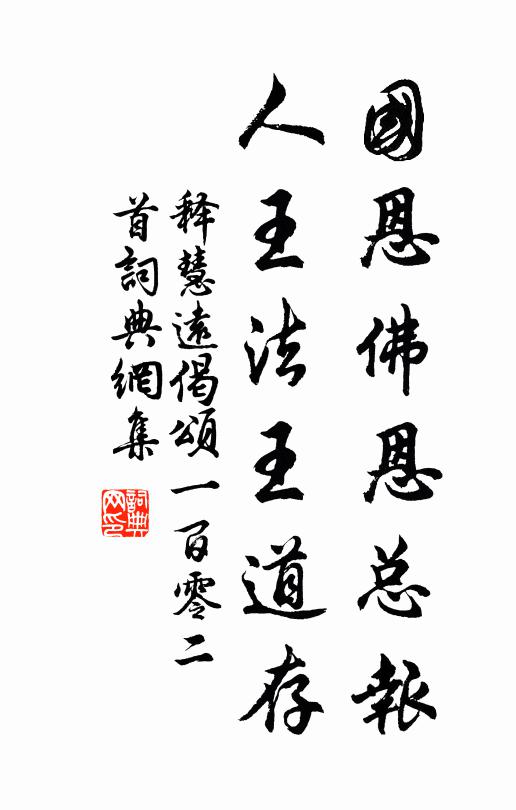 國恩佛恩总報
人王法王道存
释慧遠偈頌一百零二
首詞典網集
詞典网印